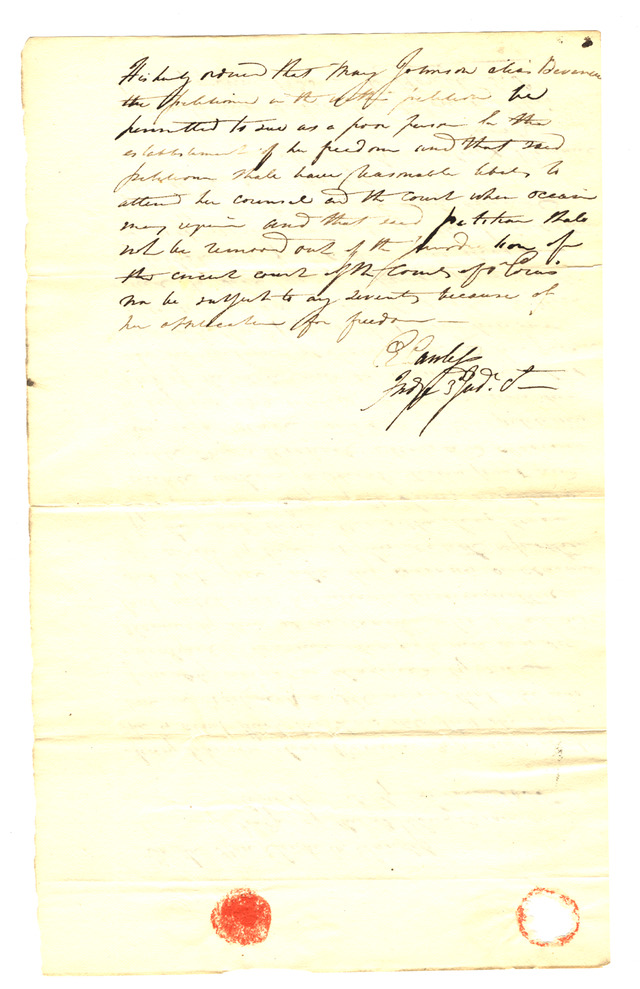 It is hereby ordered that Mary Johnson alias
the petitioner in the petition be
permitted to sue as a poor person for the
establishment of her freedom and that said
petitioner shall have reasonable liberty to
attend her counsel and the court when occasion
may require and that said petitioner shall
not be removed out of the jurisdiction of
the circuit court of the County of St Louis
nor be subject to any severity because of
her application for freedom —
Carr
Judge 3d Jud. Ct